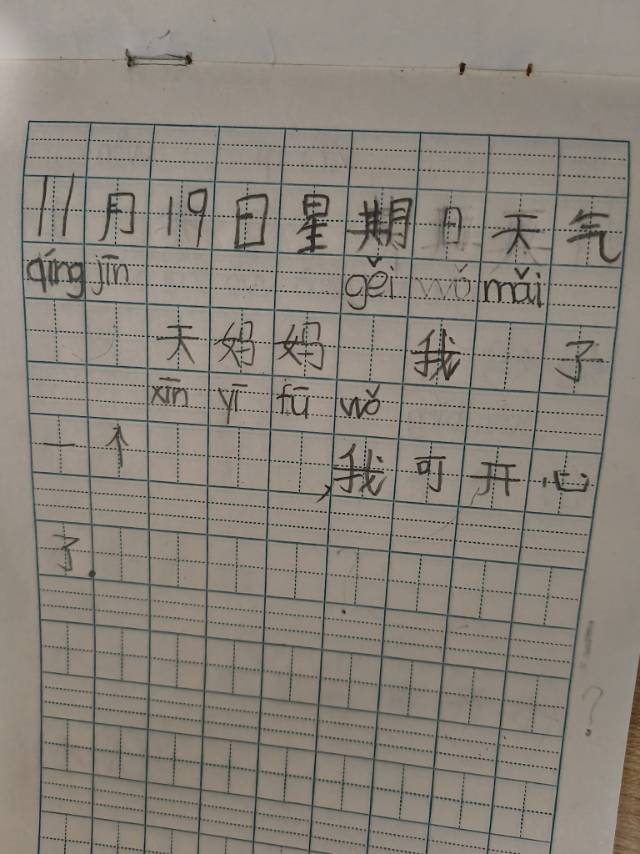 11月19日星期日天气
qíng jīn gěi wǒ mǎi
天妈妈 我 了
xīn yī fū wǒ
一个 ,我可开心
了.
?